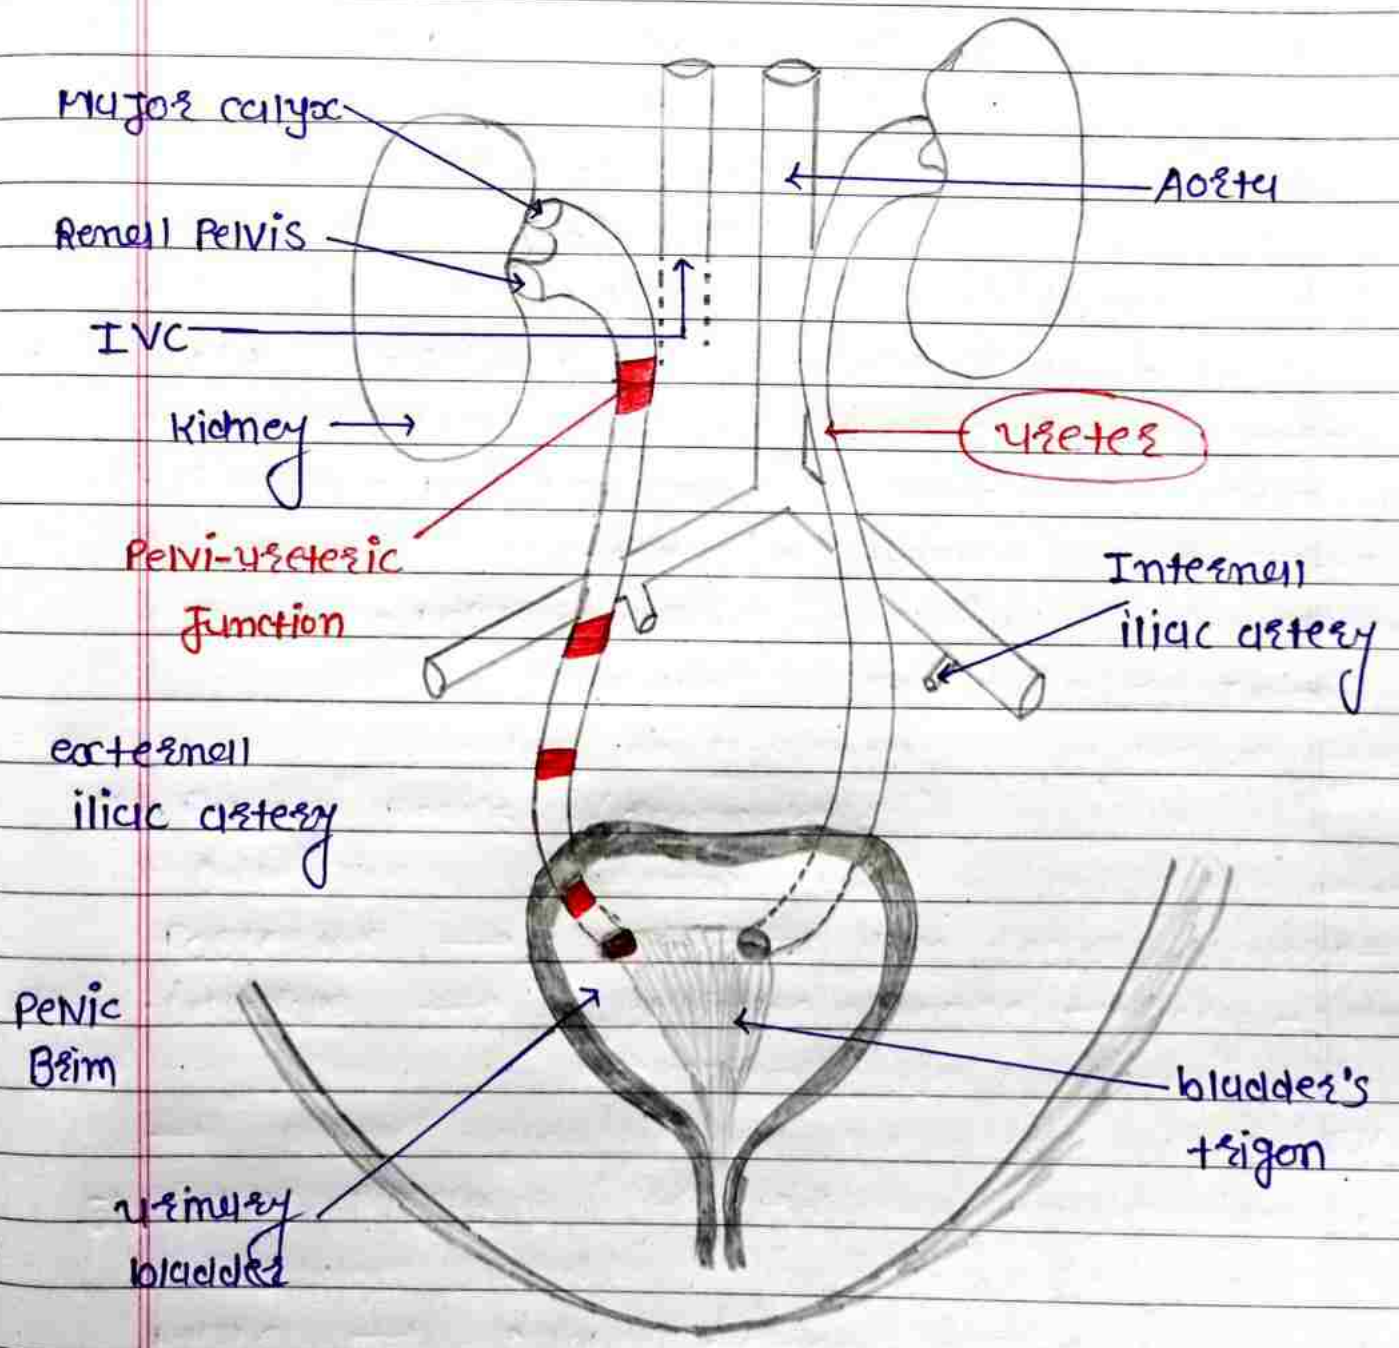 Major calyx
Renall Pelvis
IVC
Kidney
Pelvi-ureteric
Junction
externall
iliac artery
Pelvic
Brim
urinary
bladder
Aorta
ureter
Internall
iliac artery
bladder's
trigon